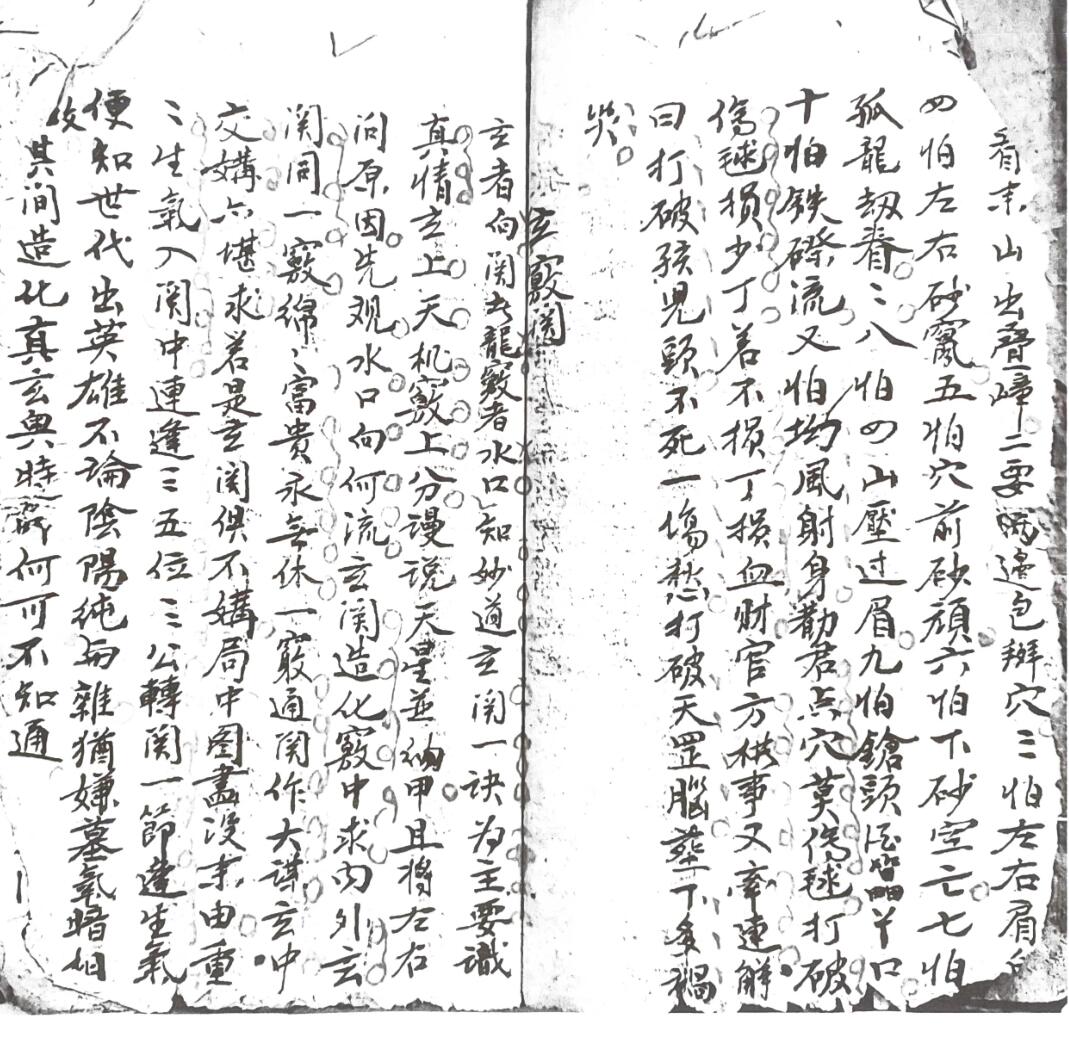 看來山出叠嶂二要两邊包辦穴三怕左右眉
四怕左右砂窝五怕穴前砂頑六怕下砂空亡七怕
孤龍刼脊〻八怕四山壓过眉九怕鎗頭丫口
十怕鉄磜流又怕坳風射身勸君点穴莫傷毬打破
傷毬損少丁若不損丁損血财官方横事又牽連解
曰打破孩兒頭不死一場愁打破天罡腦葬下多禍
哭
玄竅関
玄者向関去龍竅者水口知妙道玄関一訣为主要識
真情玄上天机竅上分谩说天星並纳甲且將左右
问原因先观水口向何流玄関造化竅中求内外玄
関同一竅绵〻富貴永無休一竅通関作大謀玄中
交媾六堪求若是玄関俱不媾局中图畫没来由重
〻生氣入関中連逢三五位三公轉関一節逢生氣
便知世代出英雄不論陰陽純與雜猶嫌墓氣暗相
攻其间造化真玄奥時師何可不知通